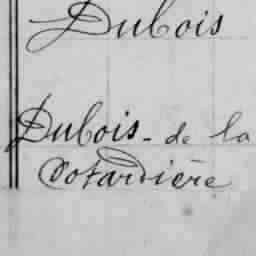 Dubois
Dubois - de la
Cotardière